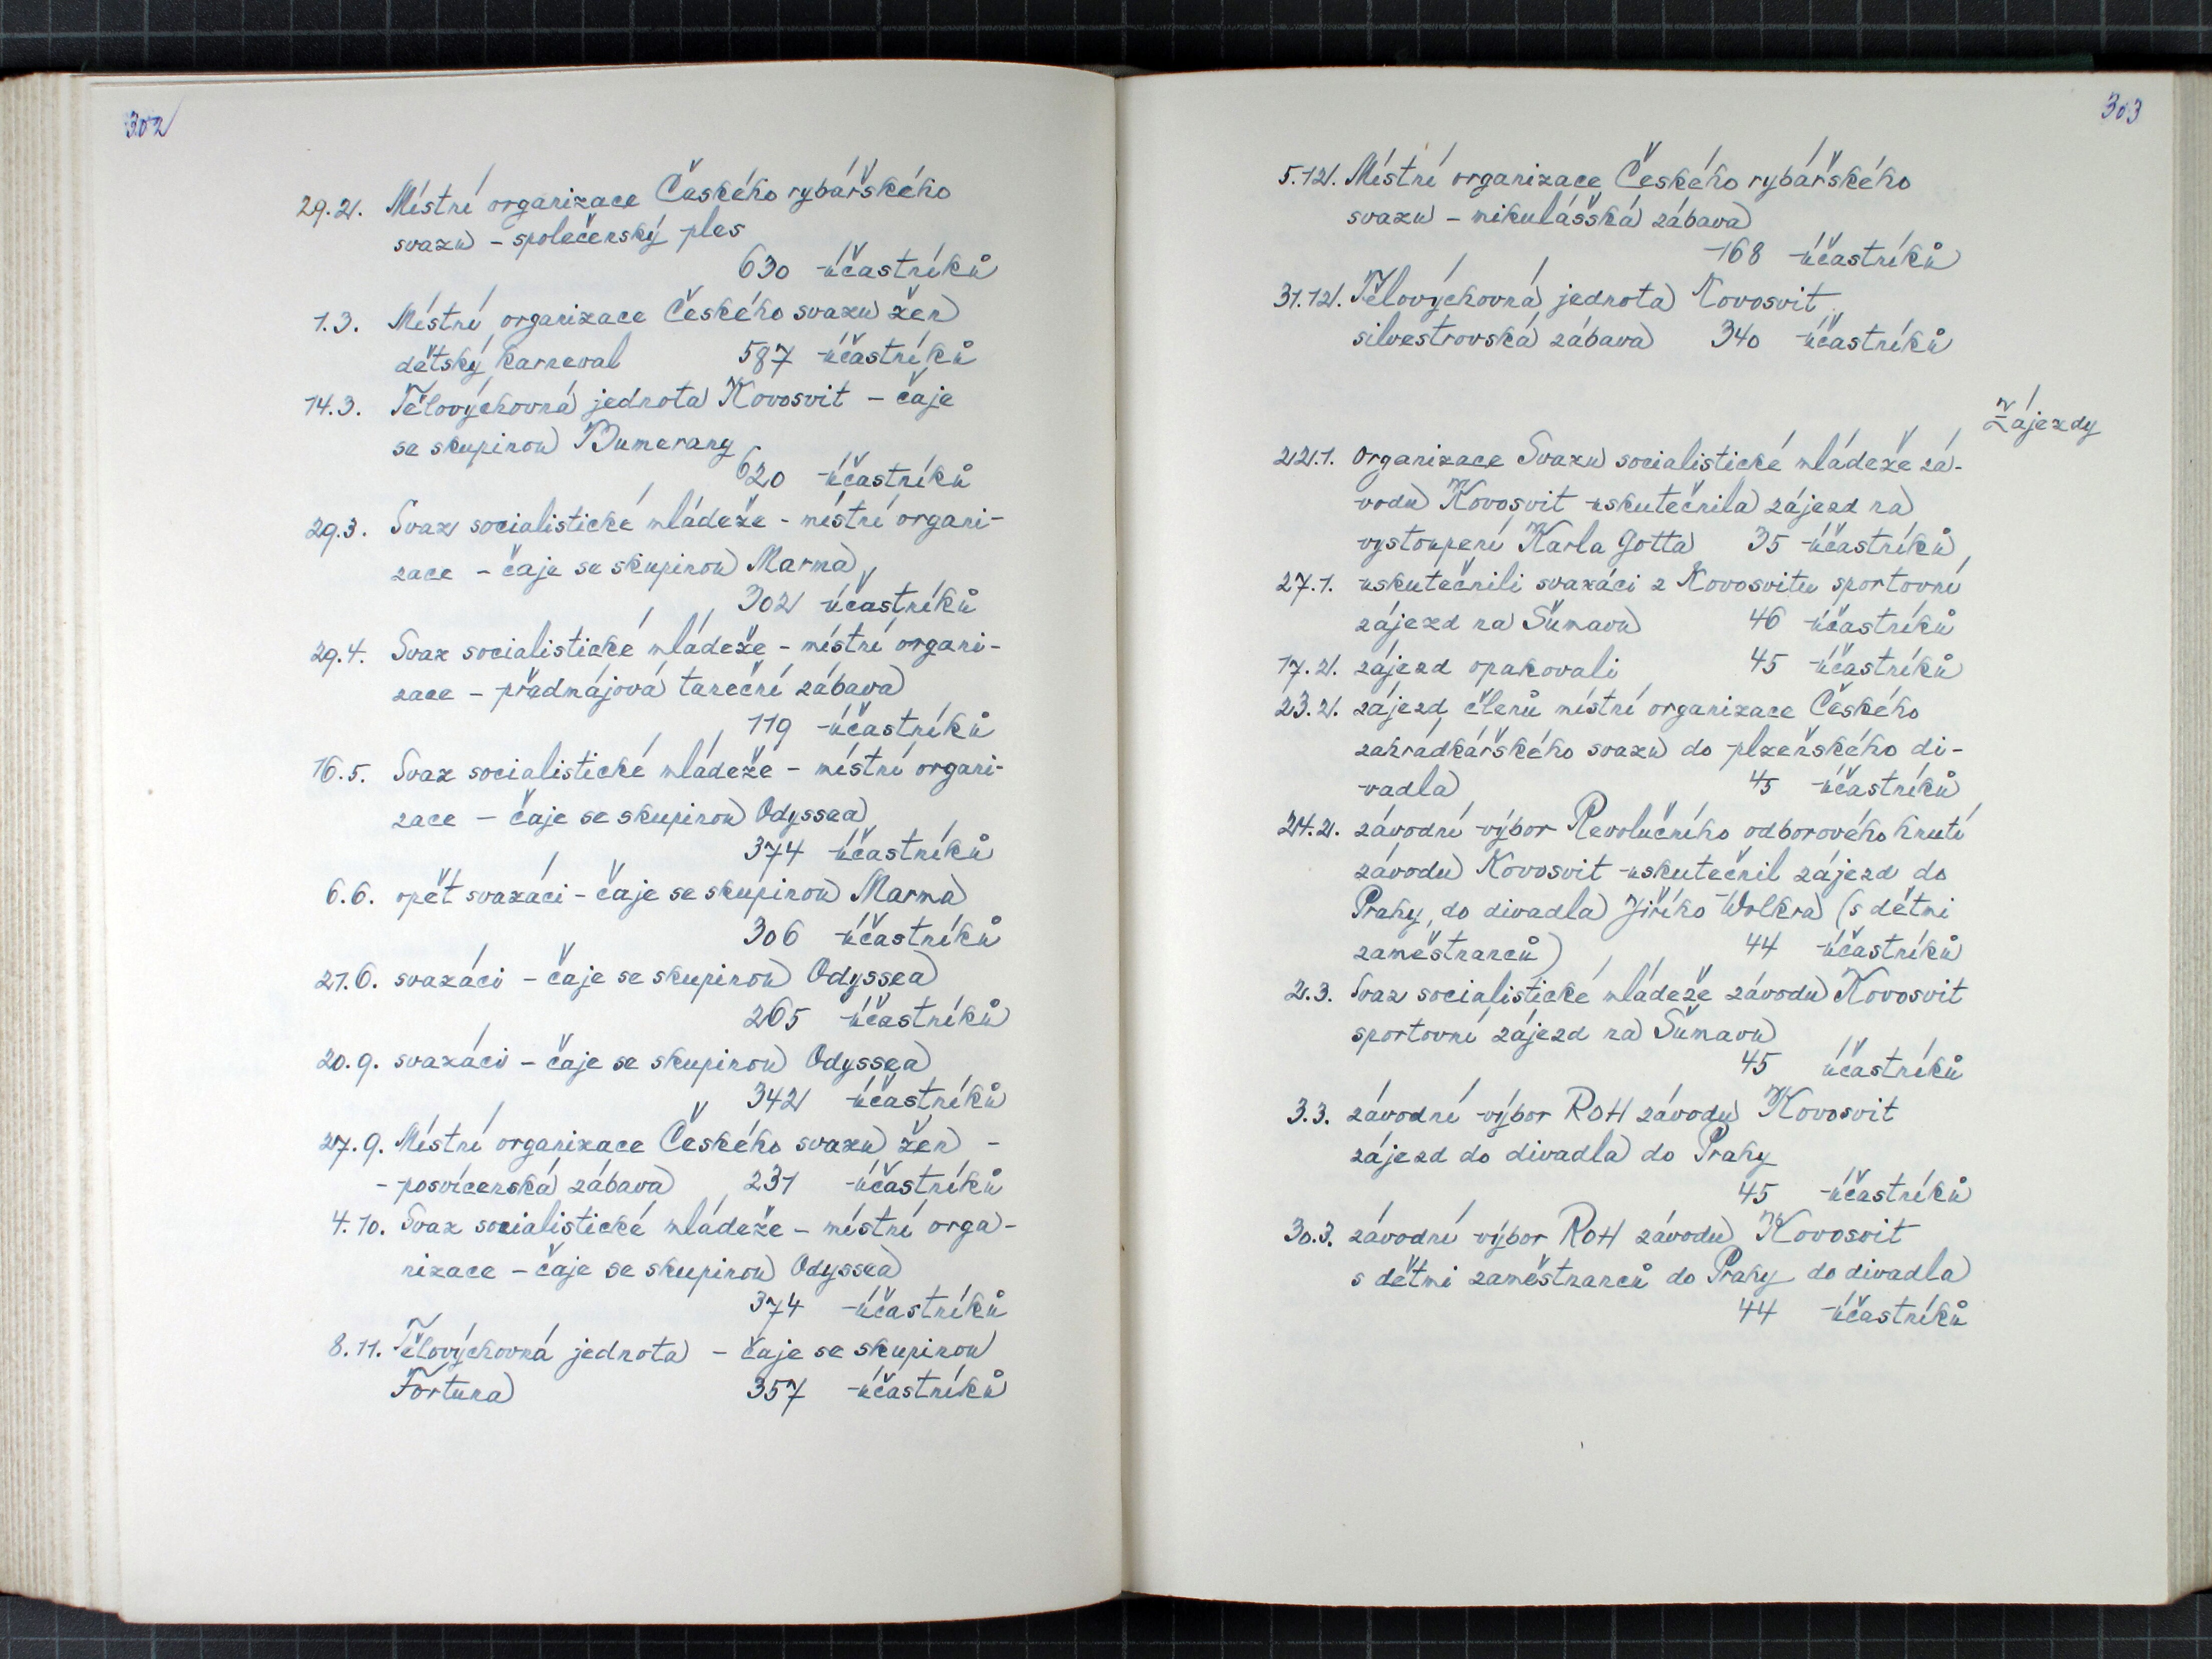 302
29.2. Místní organizace Českého rybářského
svazu - společenský ples
630 účastníků
1.3. Místní organizace Českého svazu žen
dětský karneval 587 účastníků
14.3. Tělovýchovná jednota Kovosvit - čaje
se skupinou Bumerang
620 účastníků
29.3. Svaz socialistické mládeže - místní organi-
zace - čaje se skupinou Marma
302 účastníků
29.4. Svaz socialistické mládeže - místní organi-
zace - předmájová taneční zábava
119 účastníků
16.5. Svaz socialistické mládeže - místní organi-
zace - čaje se skupinou Odyssea
374 účastníků
6.6. opět svazáci - čaje se skupinou Marma
306 účastníků
21.6. svazáci - čaje se skupinou Odyssea
265 účastníků
20.9. svazáci - čaje se skupinou Odyssea
342 účastníků
27.9. Místní organizace Českého svazu žen -
- posvícenská zábava 231 účastníků
4.10. Svaz socialistické mládeže - místní orga-
nizace - čaje se skupinou Odyssea
374 účastníků
8.11. Tělovýchovná jednota - čaje se skupinou
Fortuna 357 účastníků
303
5.12. Místní organizace Českého rybářského
svazu - mikulášská zábava
168 účastníků
31.12. Tělovýchovná jednota Kovosvit
silvestrovská zábava 340 účastníků
Zájezdy
22.1. Organizace Svazu socialistické mládeže zá-
vodu Kovosvit uskutečnila zájezd na
vystoupení Karla Gotta 35 účastníků
27.1. uskutečnili svazáci z Kovosvitu sportovní
zájezd na Šumavu 46 účastníků
17.2. zájezd opakovali 45 účastníků
23.2. zájezd členů místní organizace Českého
zahrádkářského svazu do plzeňského di-
vadla 45 účastníků
24.2. závodní výbor Revolučního odborového hnutí
závodu Kovosvit uskutečnil zájezd do
Prahy do divadla Jiřího Wolkra (s dětmi
zaměstnanců) 44 účastníků
2.3. Svaz socialistické mládeže závodu Kovosvit
sportovní zájezd na Šumavu
45 účastníků
3.3. závodní výbor ROH závodu Kovosvit
zájezd do divadla do Prahy
45 účastníků
30.3. závodní výbor ROH závodu Kovosvit
s dětmi zaměstnanců do Prahy do divadla
44 účastníků